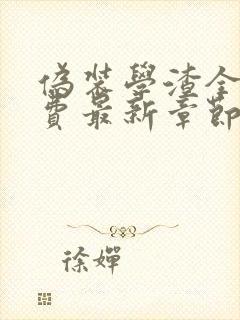 偽裝學渣全
費最新章節
徐嬋